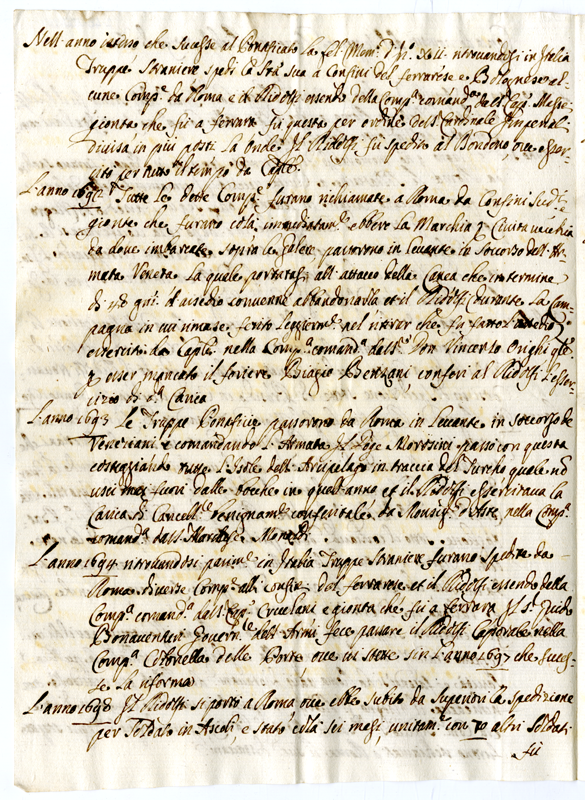 Nell'anno istesso che successe al Ponteficato la fel: Mem: d'In: XII. ritrovandosi in Italia
Truppe straniere spedì la Stà sua a Confini del ferrarese e Bolognese al-
cune Comp.e da Roma e il Ridolfi essendo della Comp.a comand.a dal Cap.
gionta che fù a ferrara fù questa per ordine dell' Cardinale Imperiali
divisa in più posti la onde Il Ridolfi fù spedito al Bondeno ove eser-
citò per tutto il tempo da Cap.le
L'anno 1692 Tutte le dette Comp.e furano richiamate a Roma da Confini sud.i e
gionte che furano colà immediatam.e ebbero la Marchia p Civita vecchia
da dove imbarcate sopra le Galere passorono in Levante in soccorso dell'Ar-
mata Veneta la quale portatasi all'attacco della Canea che in termine
di 48 gni. d'assedio convenne abbandonarla et il Ridolfi durante la Cam-
pagna in cui rimase ferito leggierm.e nel ritirar che fù fatto
esercitò da Cap.le nella Comp.a comand.a dall' Don Vincenzo Orighi
p esser mancato il foriere Biagio Benzani, conferì al Ridolfi l'eser-
cizio di d.a Carica
L'anno 1693 le Truppe Pontificie passorono da Roma in Levante in soccorso de
Veneziani e comandando l'Armata Il Doge Morosini passò con questa
costeggiando tutte l'Isole dell'Arcipelago in traccia del Turcho quale nō
uscì mai fuori dalle boche in quell'anno et il Ridolfi essercitava la
Carica di Cancell.e conferitale da Monsig. d'Aste nella Comp.a
comand.a dall' Marchese
L'anno 1694 ritrovandosi parim.e in Italia Truppe straniere furano spedite da
Roma diverse Comp.e alli confini del ferrarese et il Ridolfi essendo della
Comp.a comand.a dall' Cap. Crivelani e gionta che fù a ferrara Il S. Guido
Bonaventura Govern.le dell'Armi fece passare il Ridolfi Caporale nella
Comp.a Colonella delle Porte, ove ivi stette sin l'anno 1697 che succes-
se la riforma
L'anno 1698 Il Ridolfi si portò a Roma ove ebbe subito da superiori la spedizione
per Soldato in Ascoli e stato colà sei mesi, unitam.e con 70 altri Soldati
fù